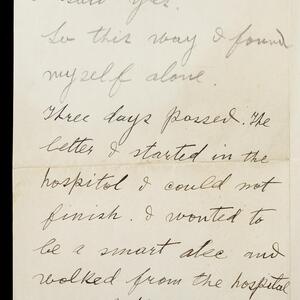 said yes.
So this way I found
myself alone.
Three days passed. The
letter I started in the
hospital I could not
finish. I wanted to
be a smart alec and
walked from the hospital